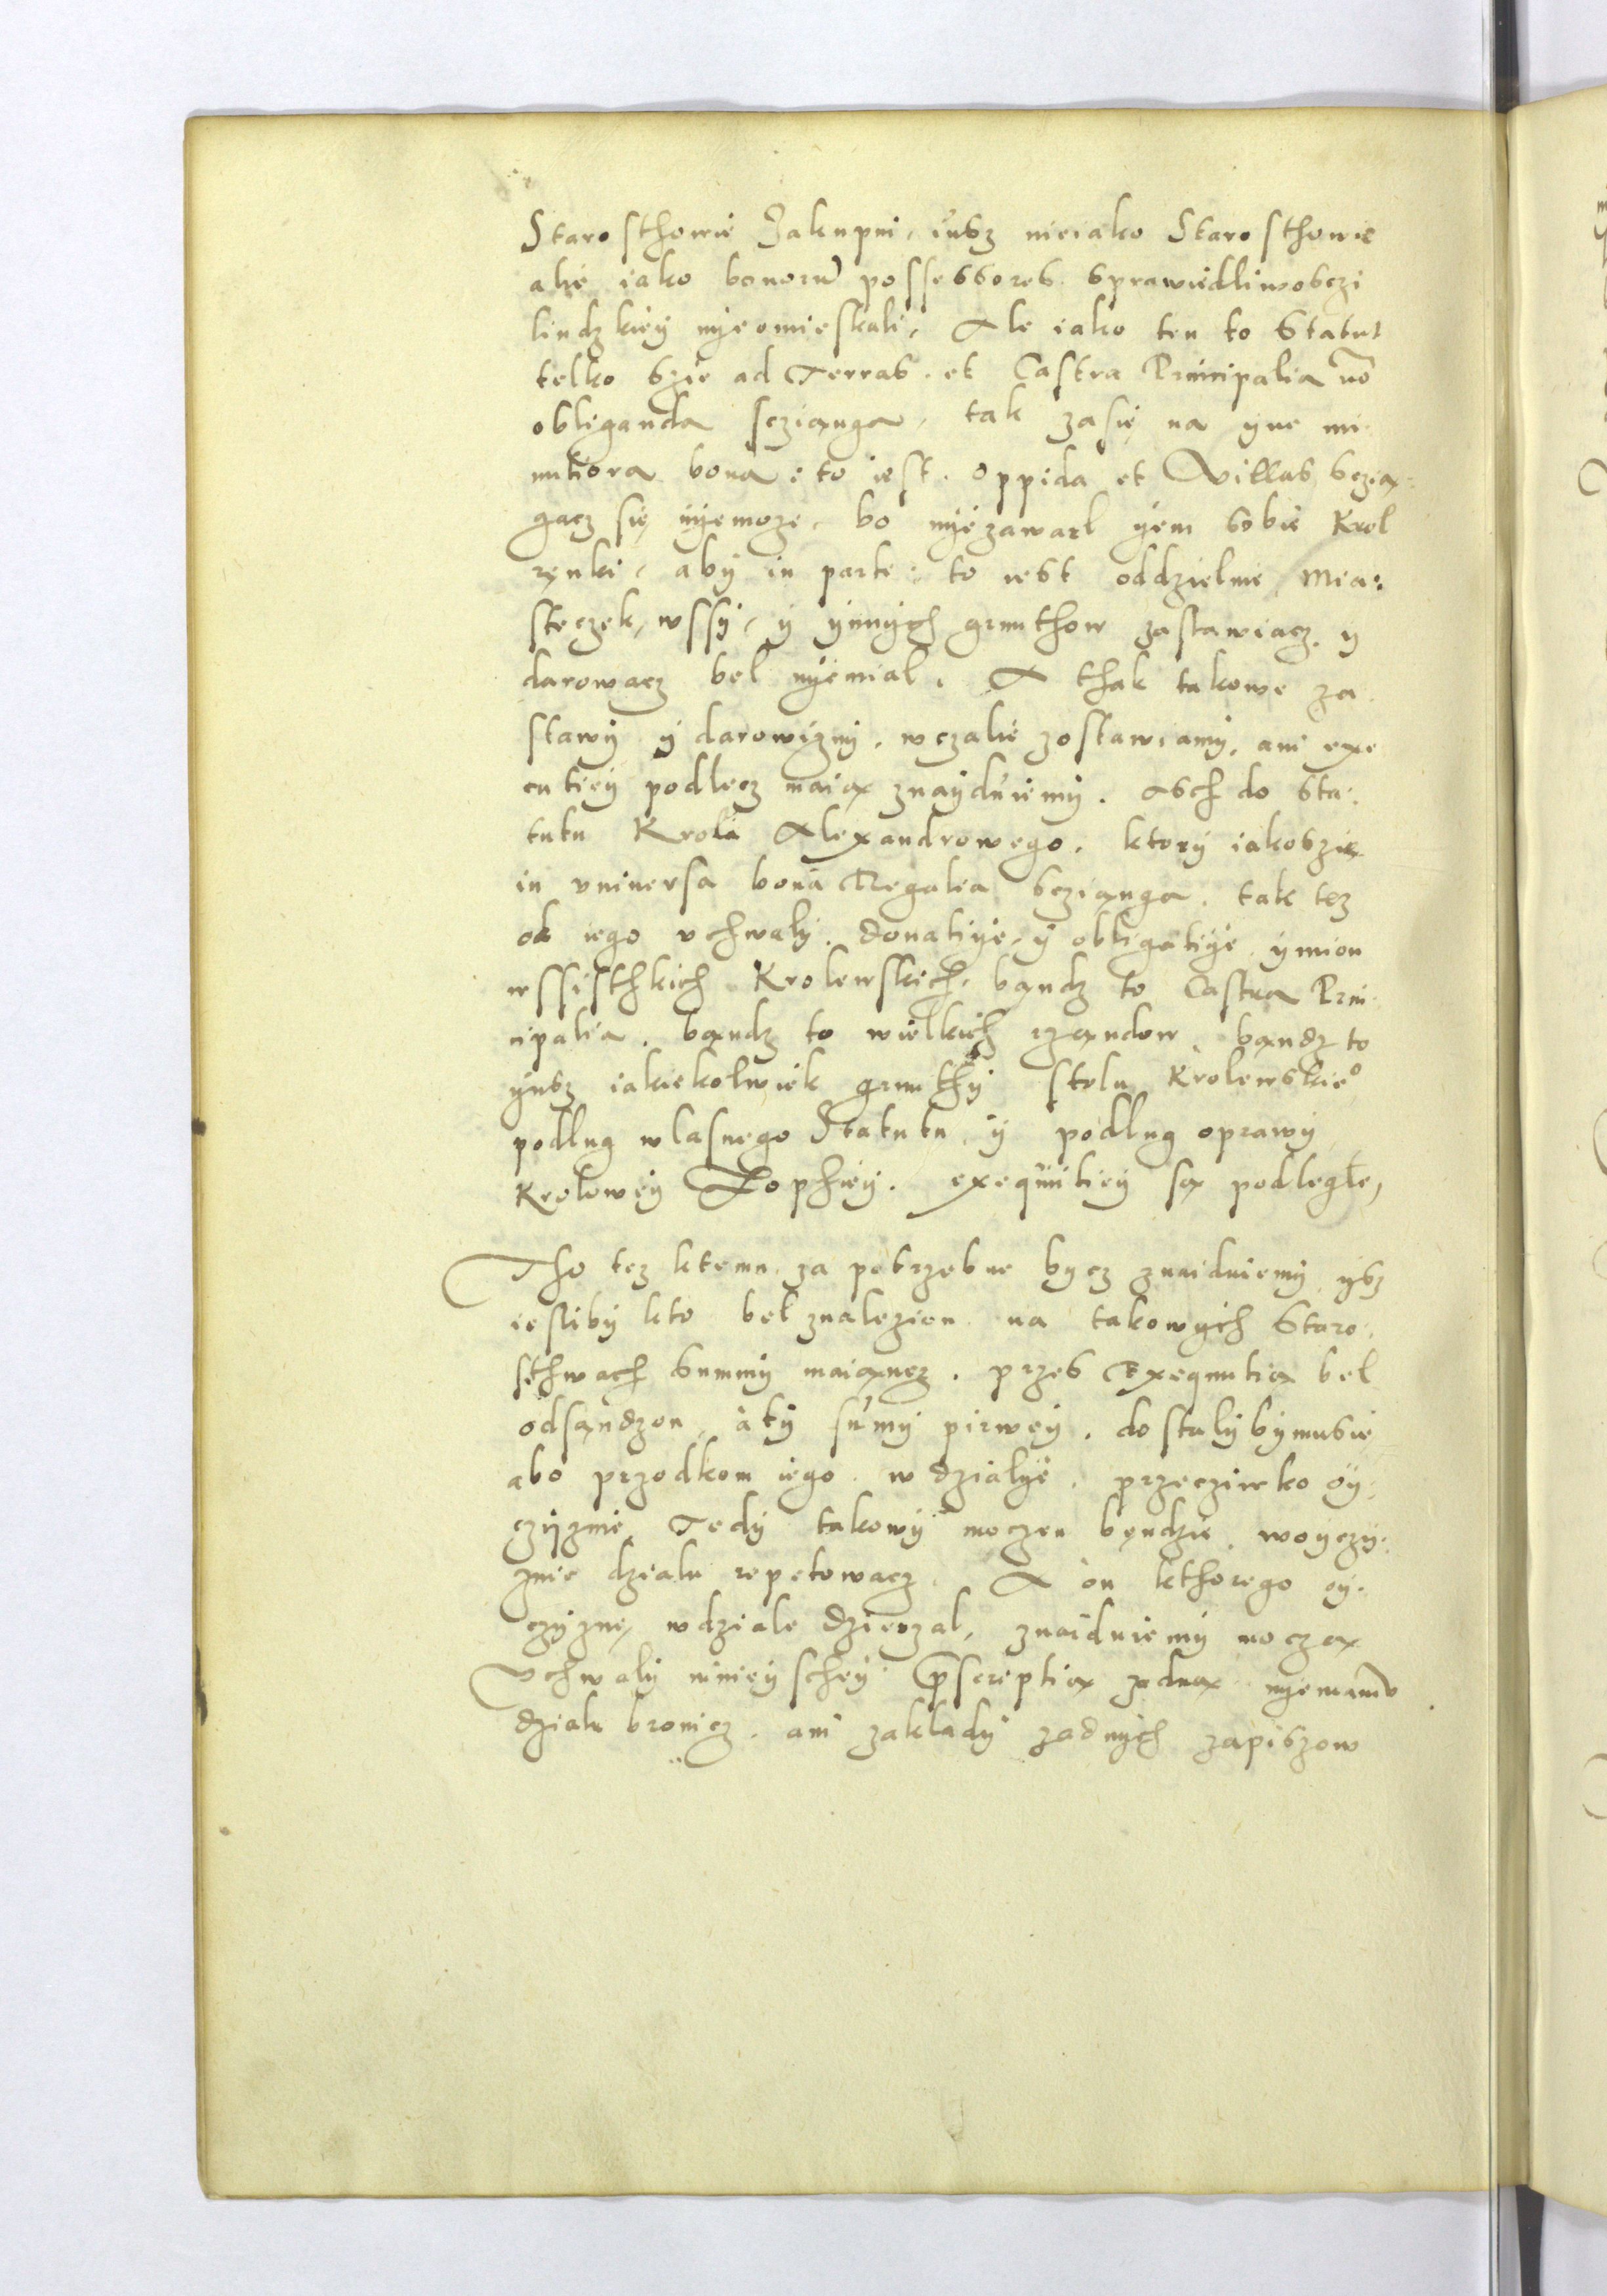 Starosthowie Zakupni, iusz nieiako Starosthowie
alie iako bonorũ possessores sprawiedliwosczi
liudzkiey nyeomieskali, Ale iako ten to Statut
telko szie ad Terras. et Castra Principalia nõ
obliganda sczianga, tak zasię na yne mi-
nutiora bona: to iest. oppida et Villas scziag-
gacz się nyemoze, bo nyezawarl yem sobie Krol
ręnki, aby in parte: to iest oddzielnie, Mia:
steczek, wssy, y ynnych grunthow zastawiacz, y
darowacz bel nyemial. A thak takowe za
stawy y darowizny, wczalie zostawiamy, ani exe
cutiey podlecz maią znayduiemy. Asch do Sta:
tutu Krola Alexandrowego, ktory iakoszie
in vniuersa bona Regalia sczianga, tak tez
od iego vchwaly. donatiye, y obligatiye ymion
wssisthkich Krolewskich, bandz to Castra Prin
cipalia. bandz to wielkich rzandow, bandz to
ynsz iakiekolwiek grunthy stolu Krolewskieº
podlug wlasnego Statutu, y podlug oprawy
Krolowey Zophiey. exequutiey są podlegle,
Tho tez ktemu za potrzebne bycz znaiduiemy, ysz
iesliby kto bel znalezion na takowych Staro
sthwach Summy maiąncz, przes Exequutią bel
odsandzon, a ty sũmy pirwey, dostaly bymusie
abo przodkom iego w dzialye, przecziwko oy
czyznie, Tedy takowy moczen bendzie, woyczy:
znie dzialu repetowacz, A on kthorego oy-
czyznę, wdziale dzierzal, znaiduiemy moczą
vchwaly ninieyschey pręscreptią zadną nyemamu
dzialu bronicz, ani zaklady zadnych zapiszow